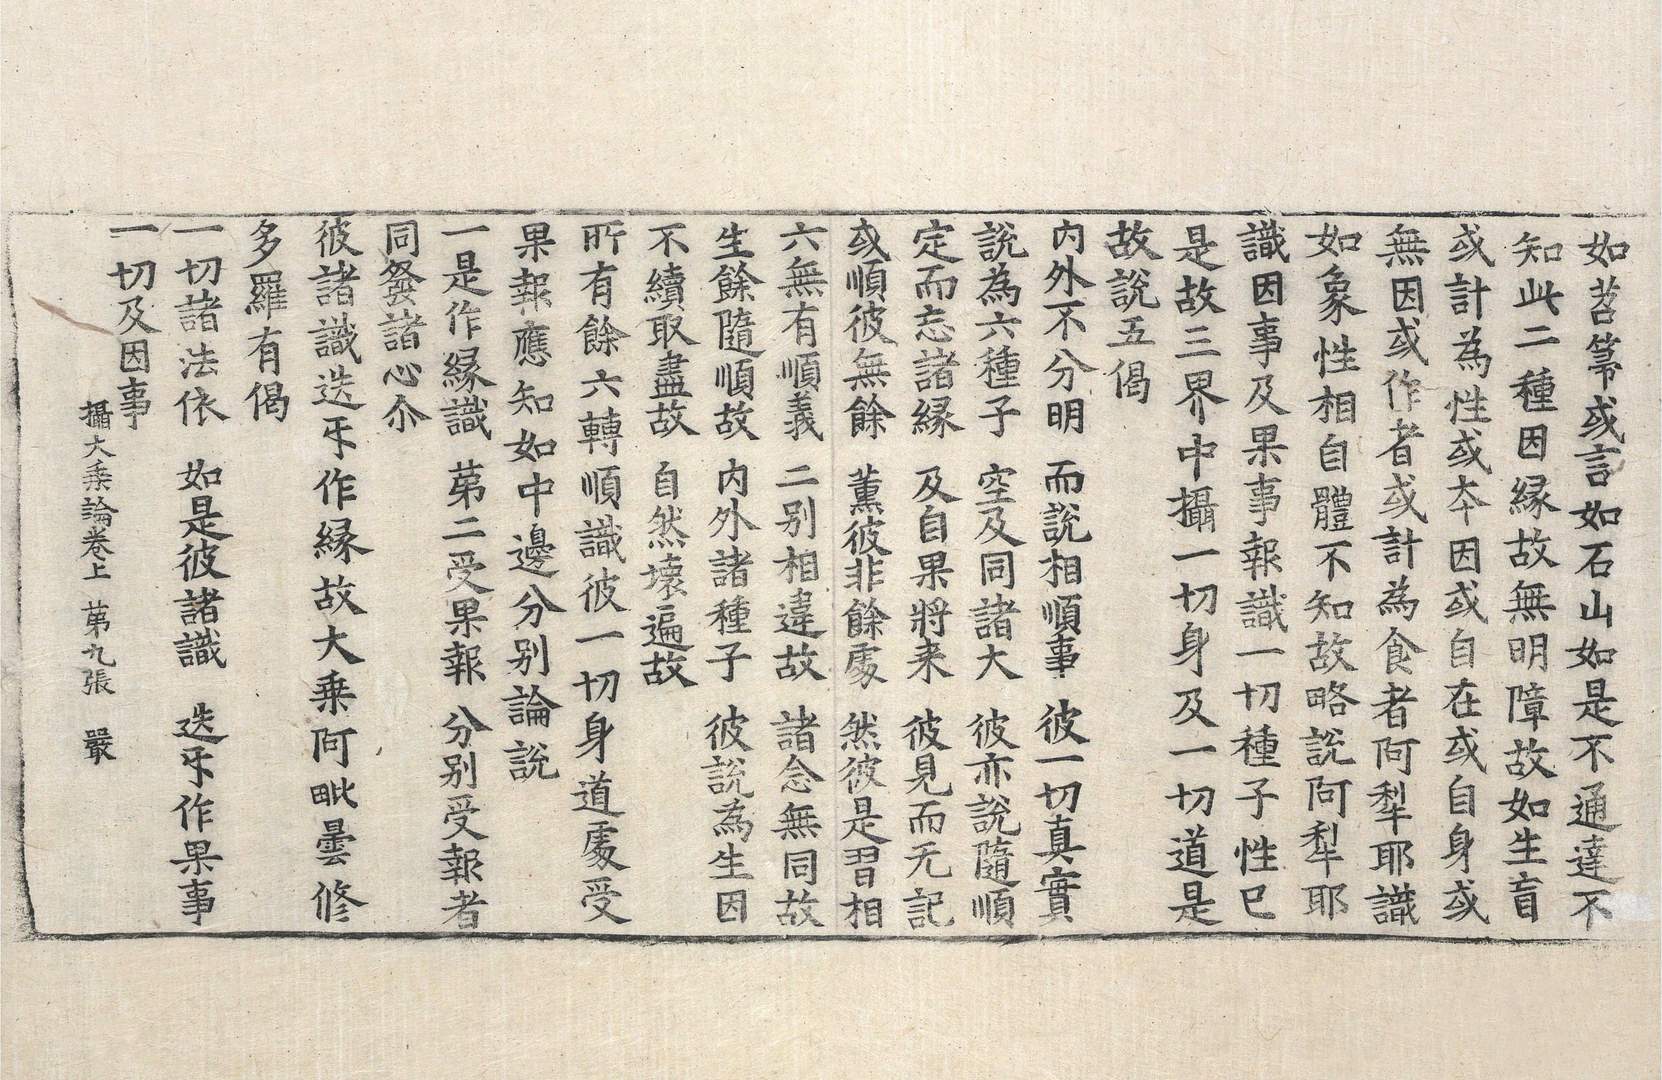 如苕箒或言如石山如是不通達不
知此二種因縁故無明障故如生盲
或計為性或本因或自在或自身或
無因或作者或計為食者阿犁耶識
如象性相自體不知故略說阿犁耶
識因事及果事報識一切種子性已
是故三界中攝一切身及一切道是
故說五偈
內外不分明 而說相順事 彼一切真實
說為六種子 空及同諸大 彼亦說隨順
定而忘諸縁 及自果將来 彼見而无記
或順彼無餘 薰彼非餘䖏 然彼是習相
六無有順義 二別相違故 諸念無同故
生餘隨順故 內外諸種子 彼說為生因
不續取盡故 自然壞遍故
所有餘六轉順識彼一切身道䖏受
果報應知如中邊分別論說
一是作縁識 苐二受果報 分別受報者
同發諸心尒
彼諸識迭㸦作縁故大乗阿毗曇修
多羅有偈
一切諸法依 如是彼諸識 迭㸦作果事
一切及因事
攝大乗論卷上 苐九張 嚴